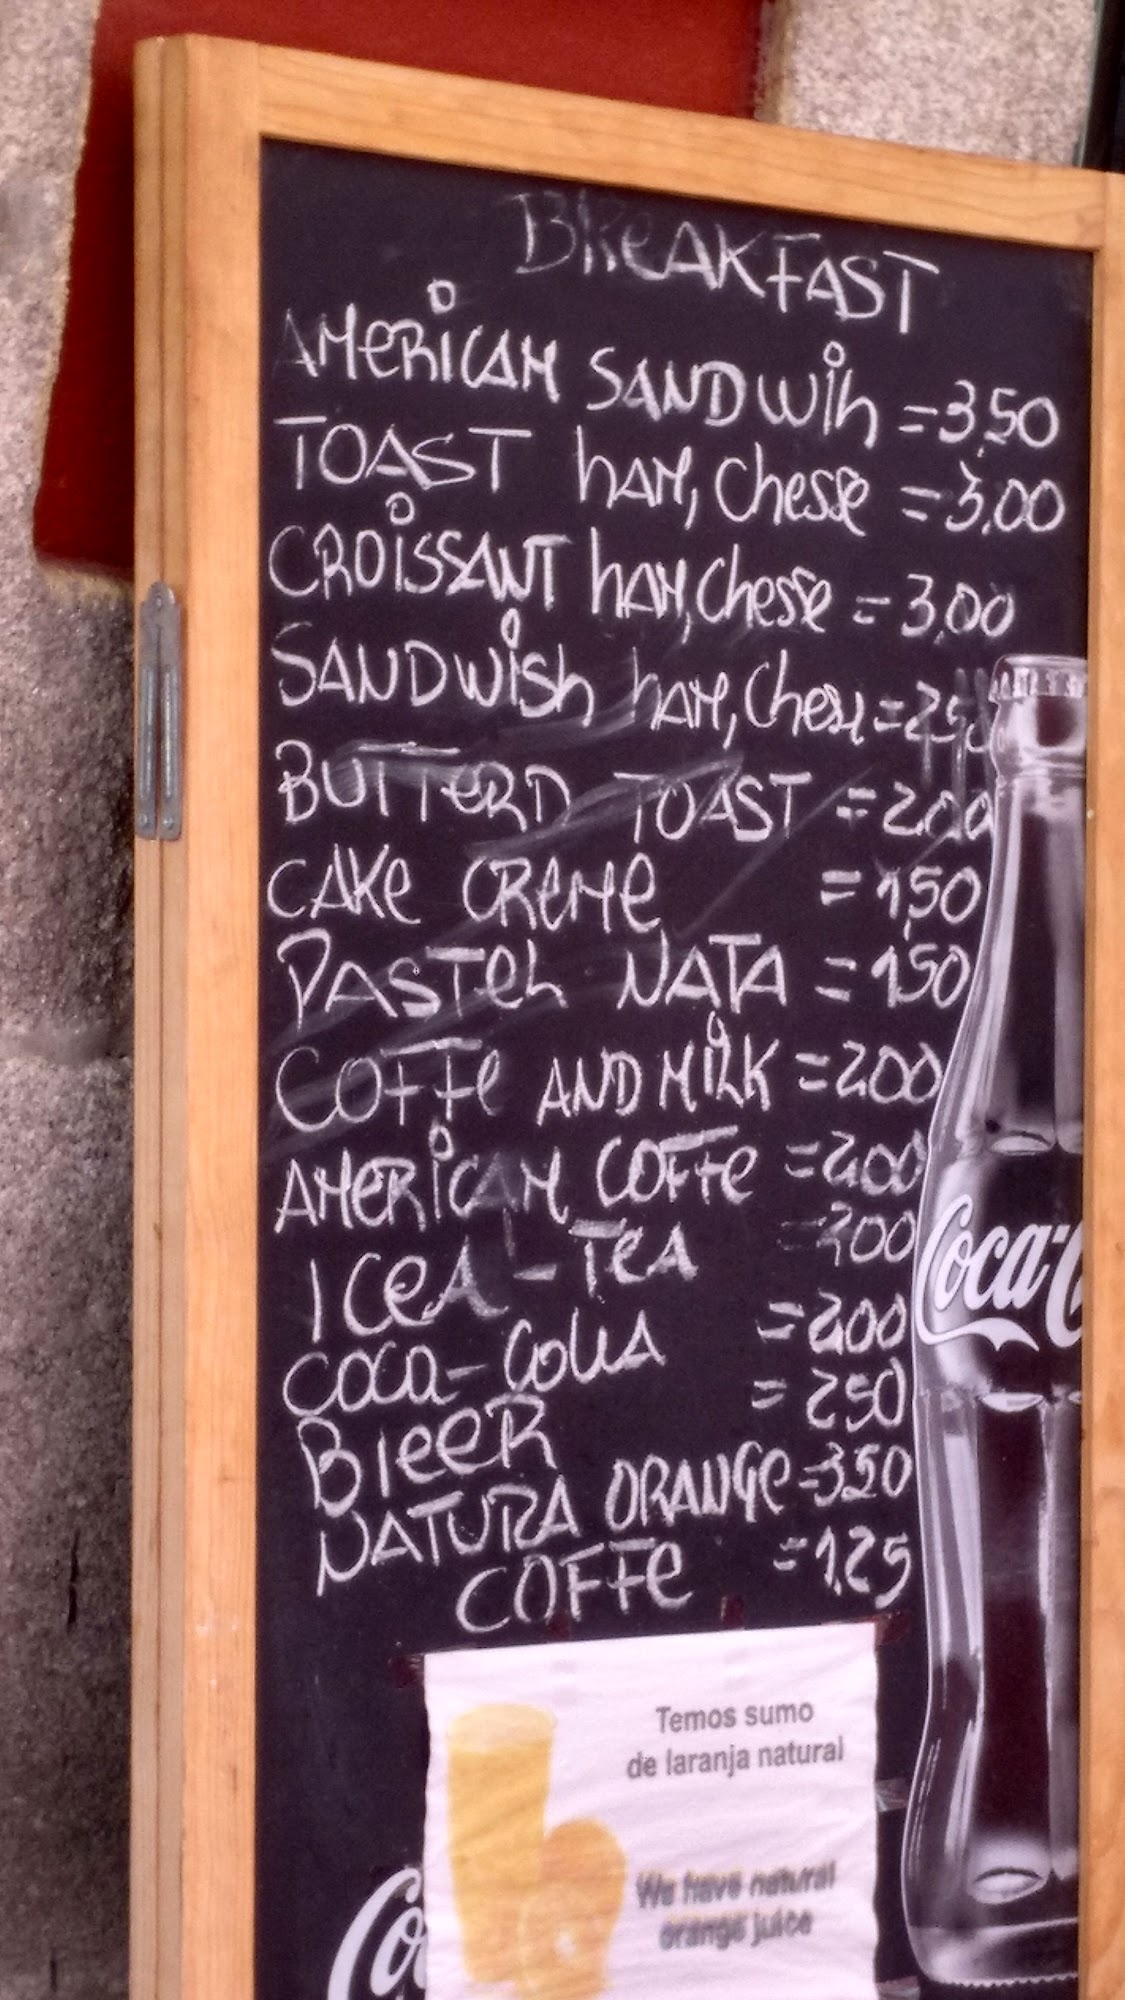 BReAKFAST
AMeRiCAM SANDWih =3,50
TOAST hAM, Chesse =3,00
CROiSSANT hAM, Chesse =3,00
SANDWish hAM, Chese =2,50
BUTTeRD TOAST =2,00
CAKe CReMe =1,50
PASTeL NATA =1,50
COFFe AND MiLK =2,00
AMeRiCAM COFFe =2,00
ICeA-TeA =2,00
COCA-COLLA =2,00
BIeeR =2,50
NATURA ORANGe =3,50
COFFe =1,25
Coca-C
Temos sumo
de laranja natural
We have natural
orange juice
Co